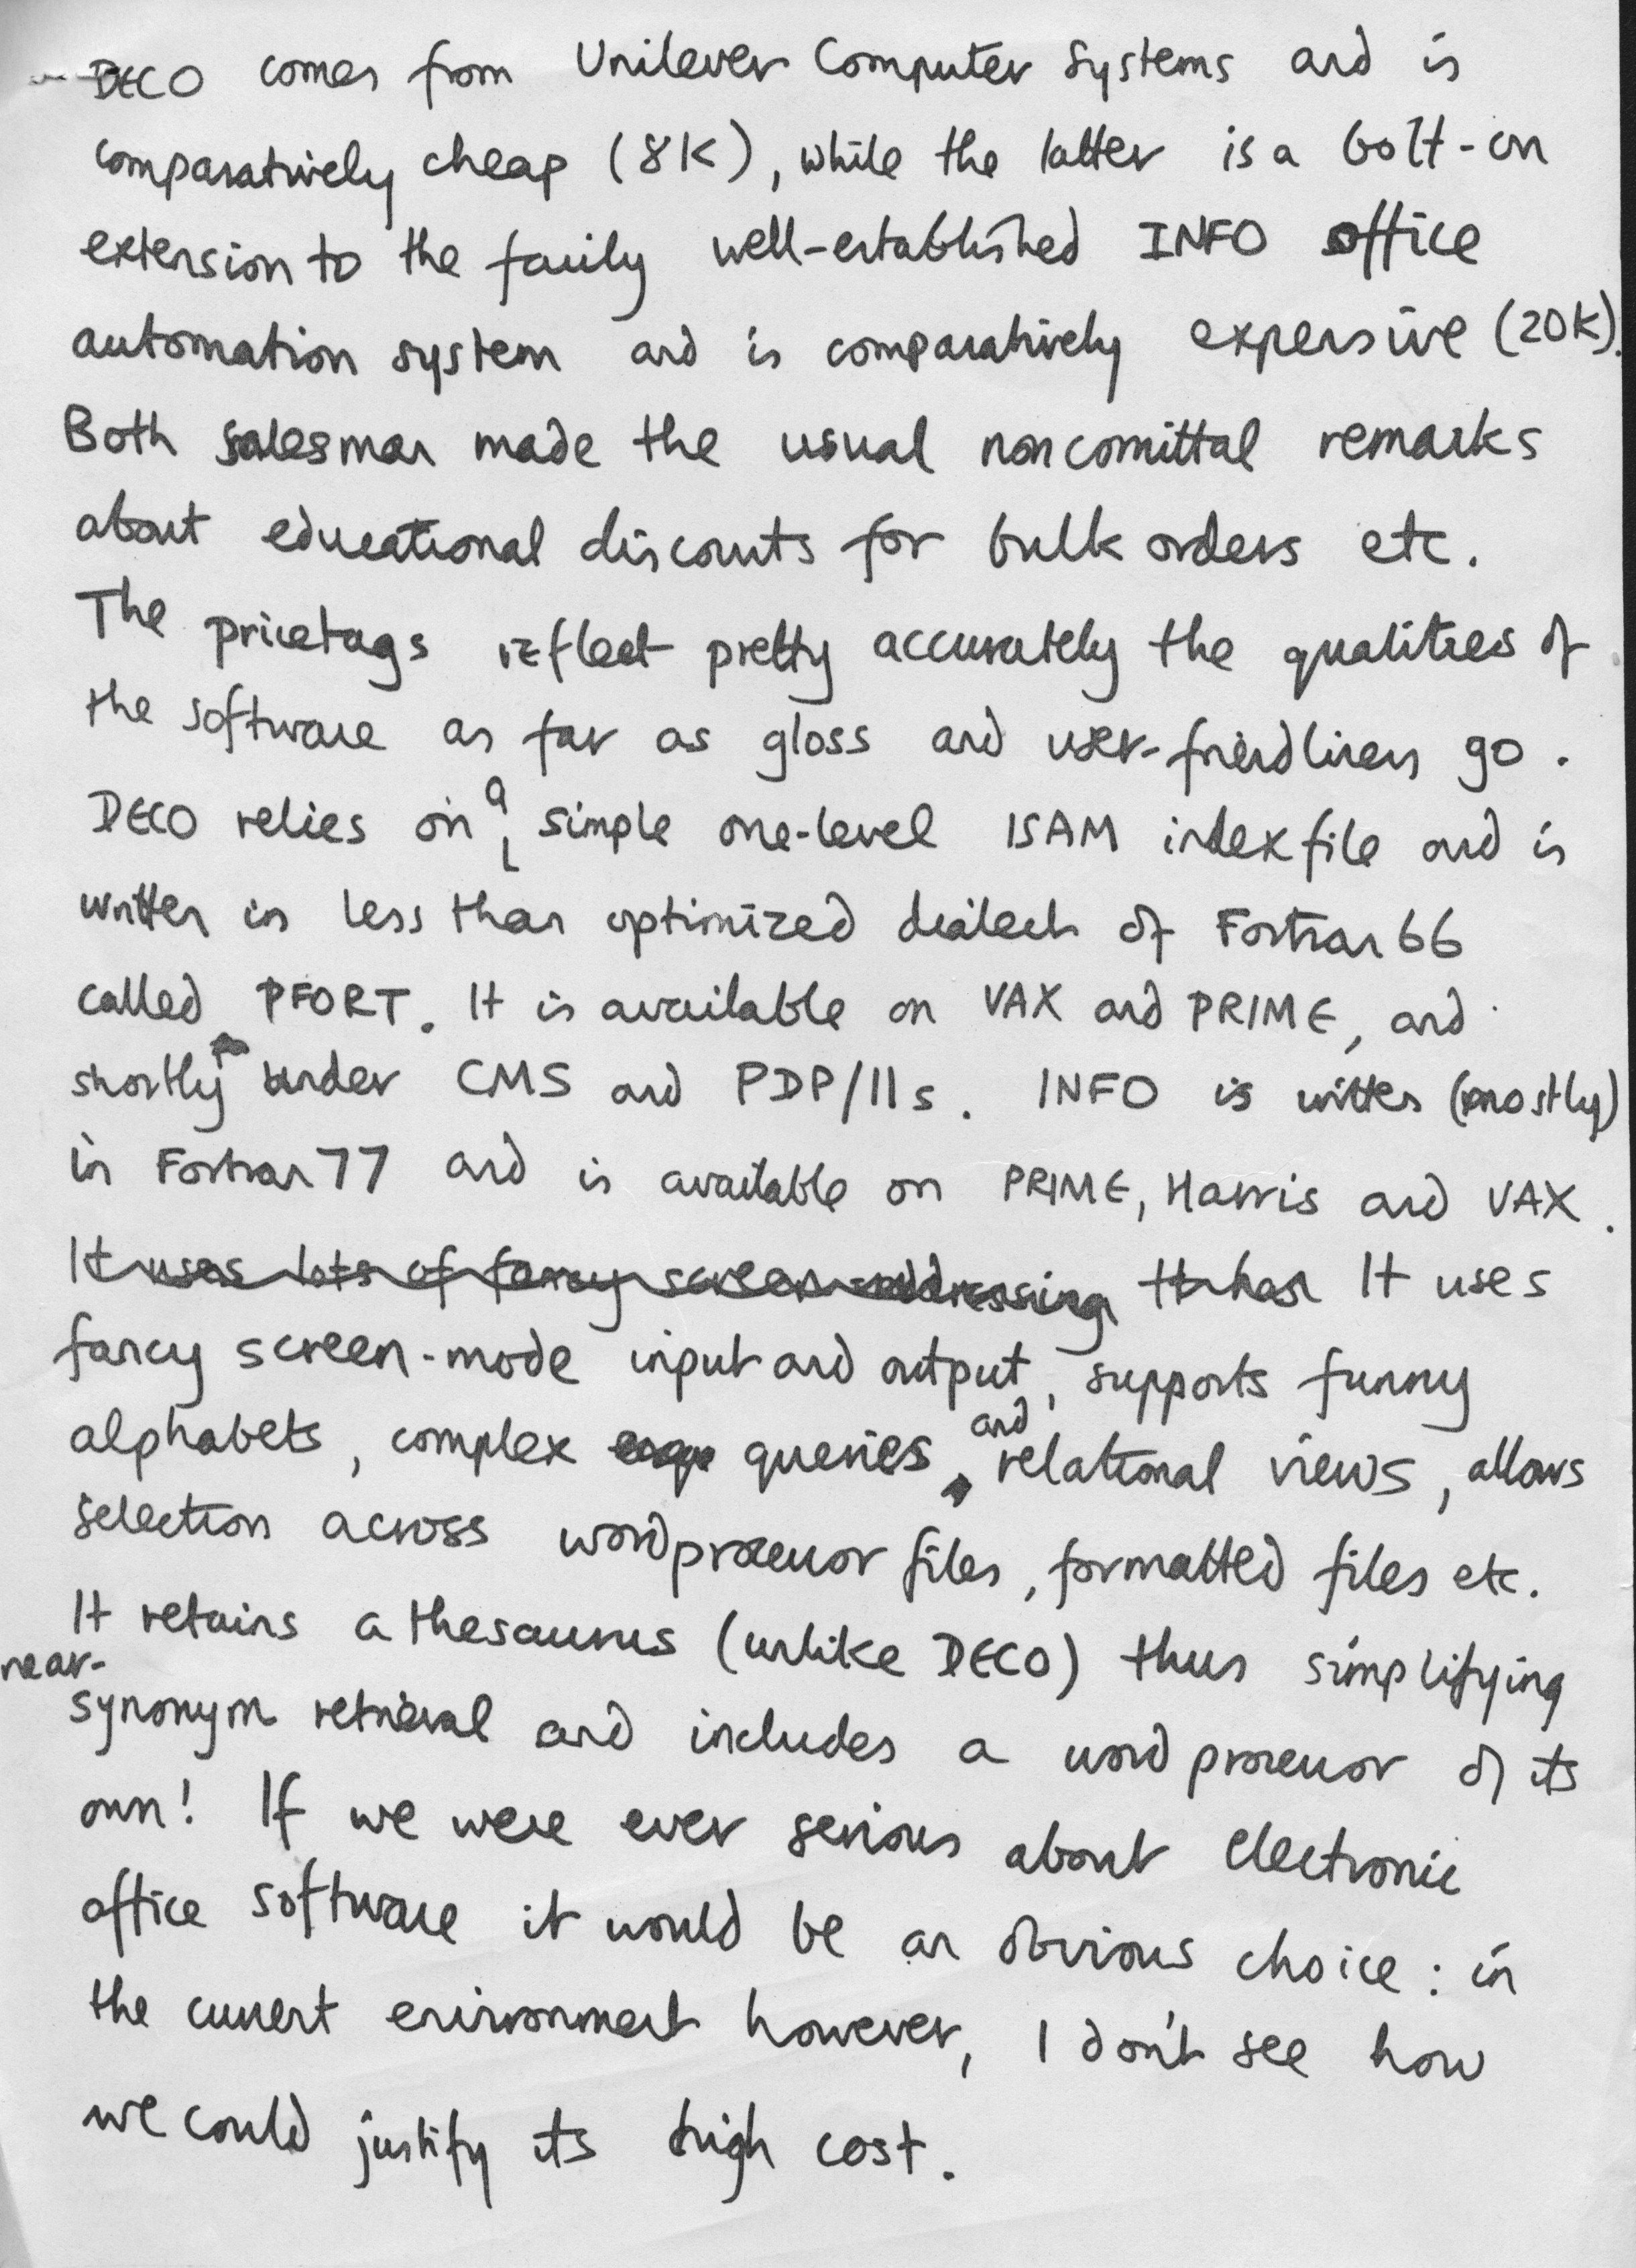 DECO comes from Unilever Computer Systems and is
comparatively cheap (8K), while the latter is a bolt-on
extension to the faiily well-established INFO office
automation system and is comparatively expensive (20K).
Both salesman made the usual noncomittal remarks
about educational discounts for bulk orders etc.
The pricetags reflect pretty accurately the qualities of
the software as far as gloss and user-friendliness go.
DECO relies on a simple one-level ISAM index file and is
written in less than optimized dialect of Fortran 66
called PFORT. It is available on VAX and PRIME, and
shortly under CMS and PDP/11s. INFO is written (mostly)
in Fortran 77 and is available on PRIME, Harris and VAX.
It uses lots of fancy screen addressing It has It uses
fancy screen-mode input and output, supports funny
alphabets, complex queries and relational views, allows
selection across wordprocessor files, formatted files etc.
It retains a thesaurus (unlike DECO) thus simplifying
near-
synonym retrieval and includes a word processor of its
own! If we were ever serious about electronic
office software it would be an obvious choice: in
the current environment however, I don't see how
we could justify its high cost.